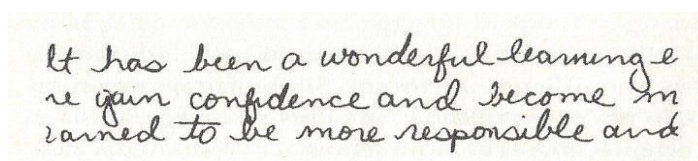 It has been a wonderful learning e
me gain confidence and become m
earned to be more responsible and